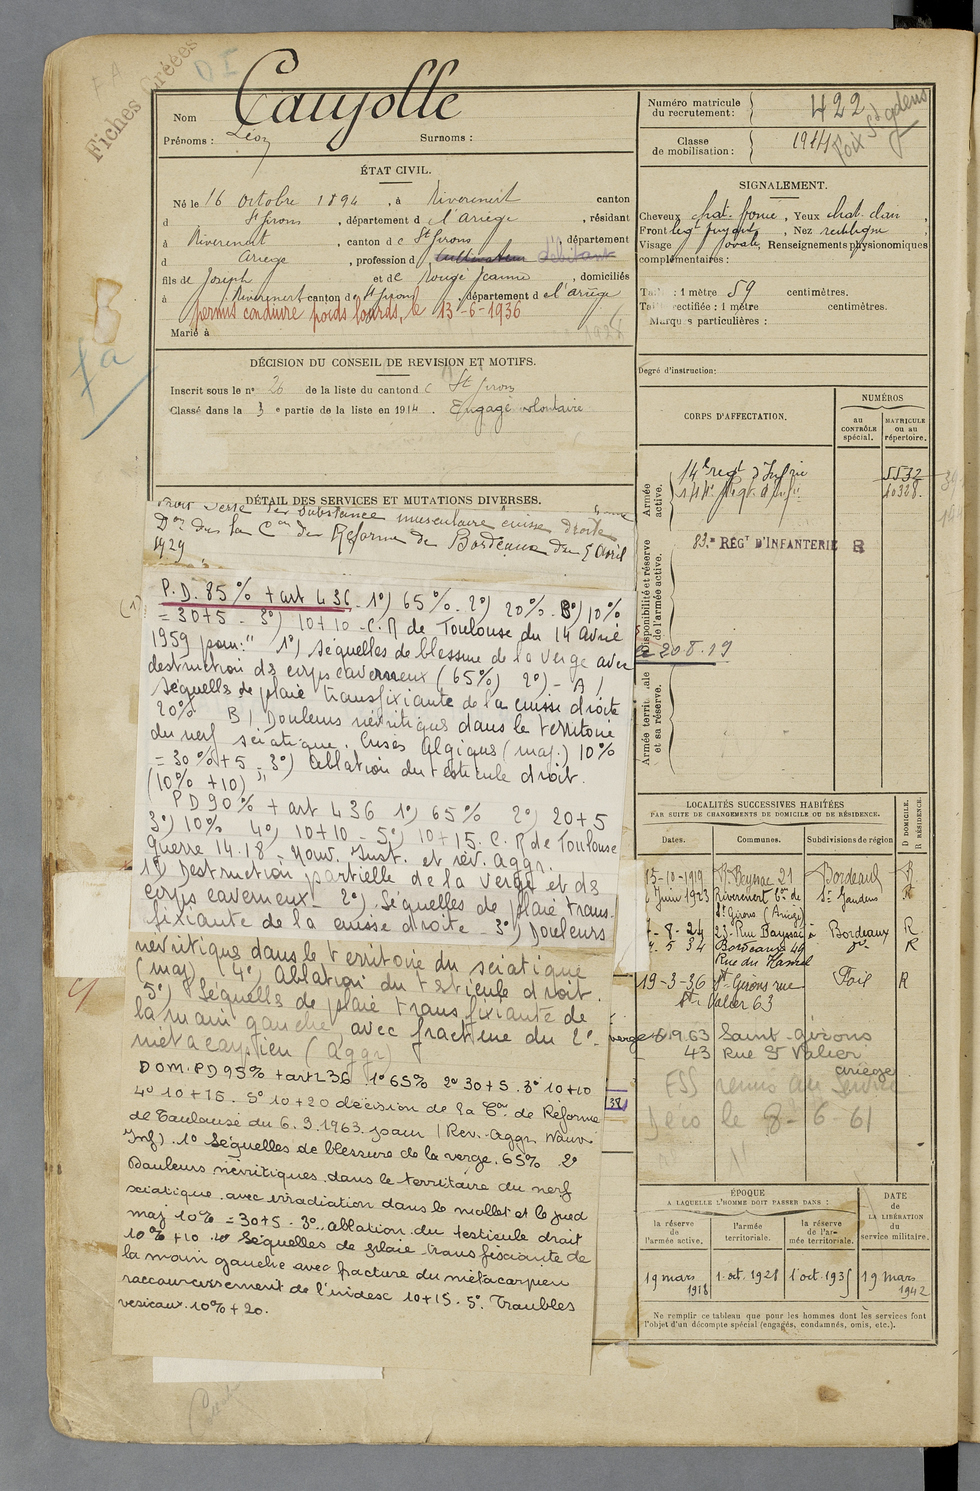 Fiches Créées
DI
Nom Caujolle
Prénoms : Léon Surnoms :
ÉTAT CIVIL.
Né le 16 octobre 1894, à Riverenert canton
d St Girons, département d e l'Ariège, résidant
à Riverenert, canton d e St Girons, département
d Ariège, profession d cultivateur débitant
fils de Joseph et de Rougé Jeanne, domiciliés
à Riverenert canton de St Girons, département d e l'Ariège
permis conduire poids lourds, le 13-6-1936
Marié à
DÉCISION DU CONSEIL DE REVISION ET MOTIFS.
Inscrit sous le n° 26 de la liste du canton d e St Girons
Classé dans la 3 e partie de la liste en 1914. Engagé volontaire
DÉTAIL DES SERVICES ET MUTATIONS DIVERSES.
avec perte de substance musculaire cuisse droite
Don de la Con de Réforme de Bordeaux du 5 avril
1929
(1)
P.D. 85% + art L 36 1°) 65% - 2°) 20% - B°) 10%
= 30+5 - 3°) 10+10 - C.R de Toulouse du 14 avril
1959 pour: " 1°) séquelles de blessure de la verge avec
destruction ds corps caverneux (65%) 2°) - A)
séquelles de plaie transfixiante de la cuisse droite
20% B) Douleurs névritiques dans le territoire
du nerf sciatique. Crises Algiques (maj.) 10%
= 30%+5 - 3°) Ablation du testicule droit.
(10% +10) "
PD 90% + art L 36 1°) 65% 2°) 20+5
3°) 10% 4°) 10+10 - 5°) 10+15. C.R de Toulouse
guerre 14.18 - Nouv. Inst. et rév. Aggr.
1°) Destruction partielle de la verge et ds
corps caverneux - 2°) Séquelles de plaie trans-
fixiante de la cuisse droite - 3°) Douleurs
névritiques dans le territoire du sciatique
(maj) (4°) Ablation du testicule droit.
5°) Séquelles de plaie transfixiante de
la main gauche, avec fracture du 2°
métacarpien (Aggr)
DOM. PD 95% + art L36 1° 65% 2° 30+5. 3° 10+10
4° 10+15. 5° 10+20 décision de la Con de Réforme
de Toulouse du 6.3.1963 pour (Rev. Aggr. Nouv.
Inf). 1° Séquelles de blessure de la verge. 65% 2°
Douleurs névritiques dans le territoire du nerf
sciatique avec irradiation dans le mollet et le pied
maj 10% = 30+5. 3° ablation du testicule droit
10% +10 4° Séquelles de plaie transfixiante de
la main gauche avec fracture du métacarpien
raccourcissement de l'index 10+15. 5° Troubles
vesicaux. 10% + 20.
Numéro matricule du recrutement: 422
Classe de mobilisation: 1914
SIGNALEMENT.
Cheveux chat. foncé, Yeux chat. clair,
Front fuyant, Nez rectiligne,
Visage ovale, Renseignements physionomiques
complémentaires :
Taille : 1 mètre 59 centimètres.
Taille rectifiée : 1 mètre centimètres.
Marques particulières :
Degré d'instruction:
CORPS D'AFFECTATION.
NUMÉROS
au CONTRÔLE spécial.
MATRICULE ou au répertoire.
Armée active.
14e regt d'Infrie 5532
144e Regt d'Infie 10328
Disponibilité et réserve de l'armée active.
83.e RÉGt D'INFANTERIE R
20.8.19
Armée territoriale et sa réserve.
LOCALITÉS SUCCESSIVES HABITÉES
PAR SUITE DE CHANGEMENTS DE DOMICILE OU DE RÉSIDENCE.
Dates. Communes. Subdivisions de région
D DOMICILE. R RÉSIDENCE.
15-10-1919 R. Beyssac 21 Bordeaux R
Juin 1923 Riverenert con de St Gaudens
St Girons (Ariège)
7-8-24 23 Rue Bayssac à Bordeaux R
4.5 34 Bordeaux 49 do R
Rue du Hamel
19-3-36 St Girons rue Foix R
St Valier 63
verge
1.9.63 Saint-Girons
43 Rue St Valier
Ariège
FSS remis au Service
le 8-6 61
38
ÉPOQUE
A LAQUELLE L'HOMME DOIT PASSER DANS :
DATE de LA LIBÉRATION du service militaire.
la réserve de l'armée active.
l'armée territoriale.
la réserve de l'armée territoriale.
19 mars 1918 1 oct. 1928 1 oct. 1935 19 mars 1942
Ne remplir ce tableau que pour les hommes dont les services font
l'objet d'un décompte spécial (engagés, condamnés, omis, etc.).